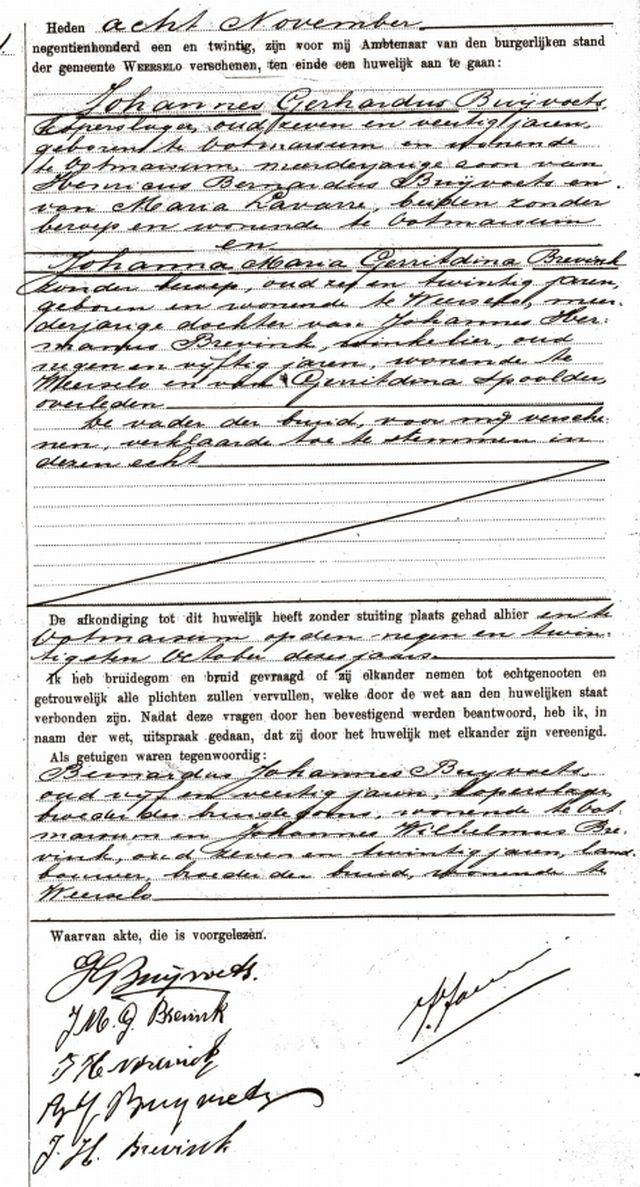 Heden acht November
negentienhonderd een en twintig, zijn voor mij Ambtenaar van den burgerlijken stand
der gemeente WEERSELO verschenen, ten einde een huwelijk aan te gaan:
Johannes Gerhardus Buijvoets,
koperslager, oud zeven en veertig jaren,
geboren te Ootmarsum en wonende
te Ootmarsum, meerderjarige zoon van
Henricus Bernardus Buijvoets en
van Maria Lavarre, beiden zonder
beroep en wonende te Ootmarsum
en
Johanna Maria Gerritdina Brevink
zonder beroep, oud zes en twintig jaren,
geboren en wonende te Weerselo, meer-
derjarige dochter van Johannes Her-
manus Brevink, winkelier, oud
negen en vijftig jaren, wonende te
Weerselo en van Gerritdina Spoolder,
overleden
De vader der bruid, voor mij versche-
nen, verklaarde toe te stemmen in
dezen echt
De afkondiging tot dit huwelijk heeft zonder stuiting plaats gehad alhier en te
Ootmarsum op den negen en twin-
tigsten October dezes jaars.
Ik heb bruidegom en bruid gevraagd of zij elkander nemen tot echtgenooten en
getrouwelijk alle plichten zullen vervullen, welke door de wet aan den huwelijken staat
verbonden zijn. Nadat deze vragen door hen bevestigend werden beantwoord, heb ik, in
naam der wet, uitspraak gedaan, dat zij door het huwelijk met elkander zijn vereenigd.
Als getuigen waren tegenwoordig:
Bernardus Johannes Buijvoets,
oud vijf en veertig jaren, koperslager,
broeder des bruidegoms, wonende te Oot-
marsum en Johannes Wilhelmus Bre-
vink, oud zeven en twintig jaren, land-
bouwer, broeder der bruid, wonende te
Weerselo
Waarvan akte, die is voorgelezen.
Buijvoets.
J M. G. Brevink
J H Brevink
Buijvoets
J. H. Brevink